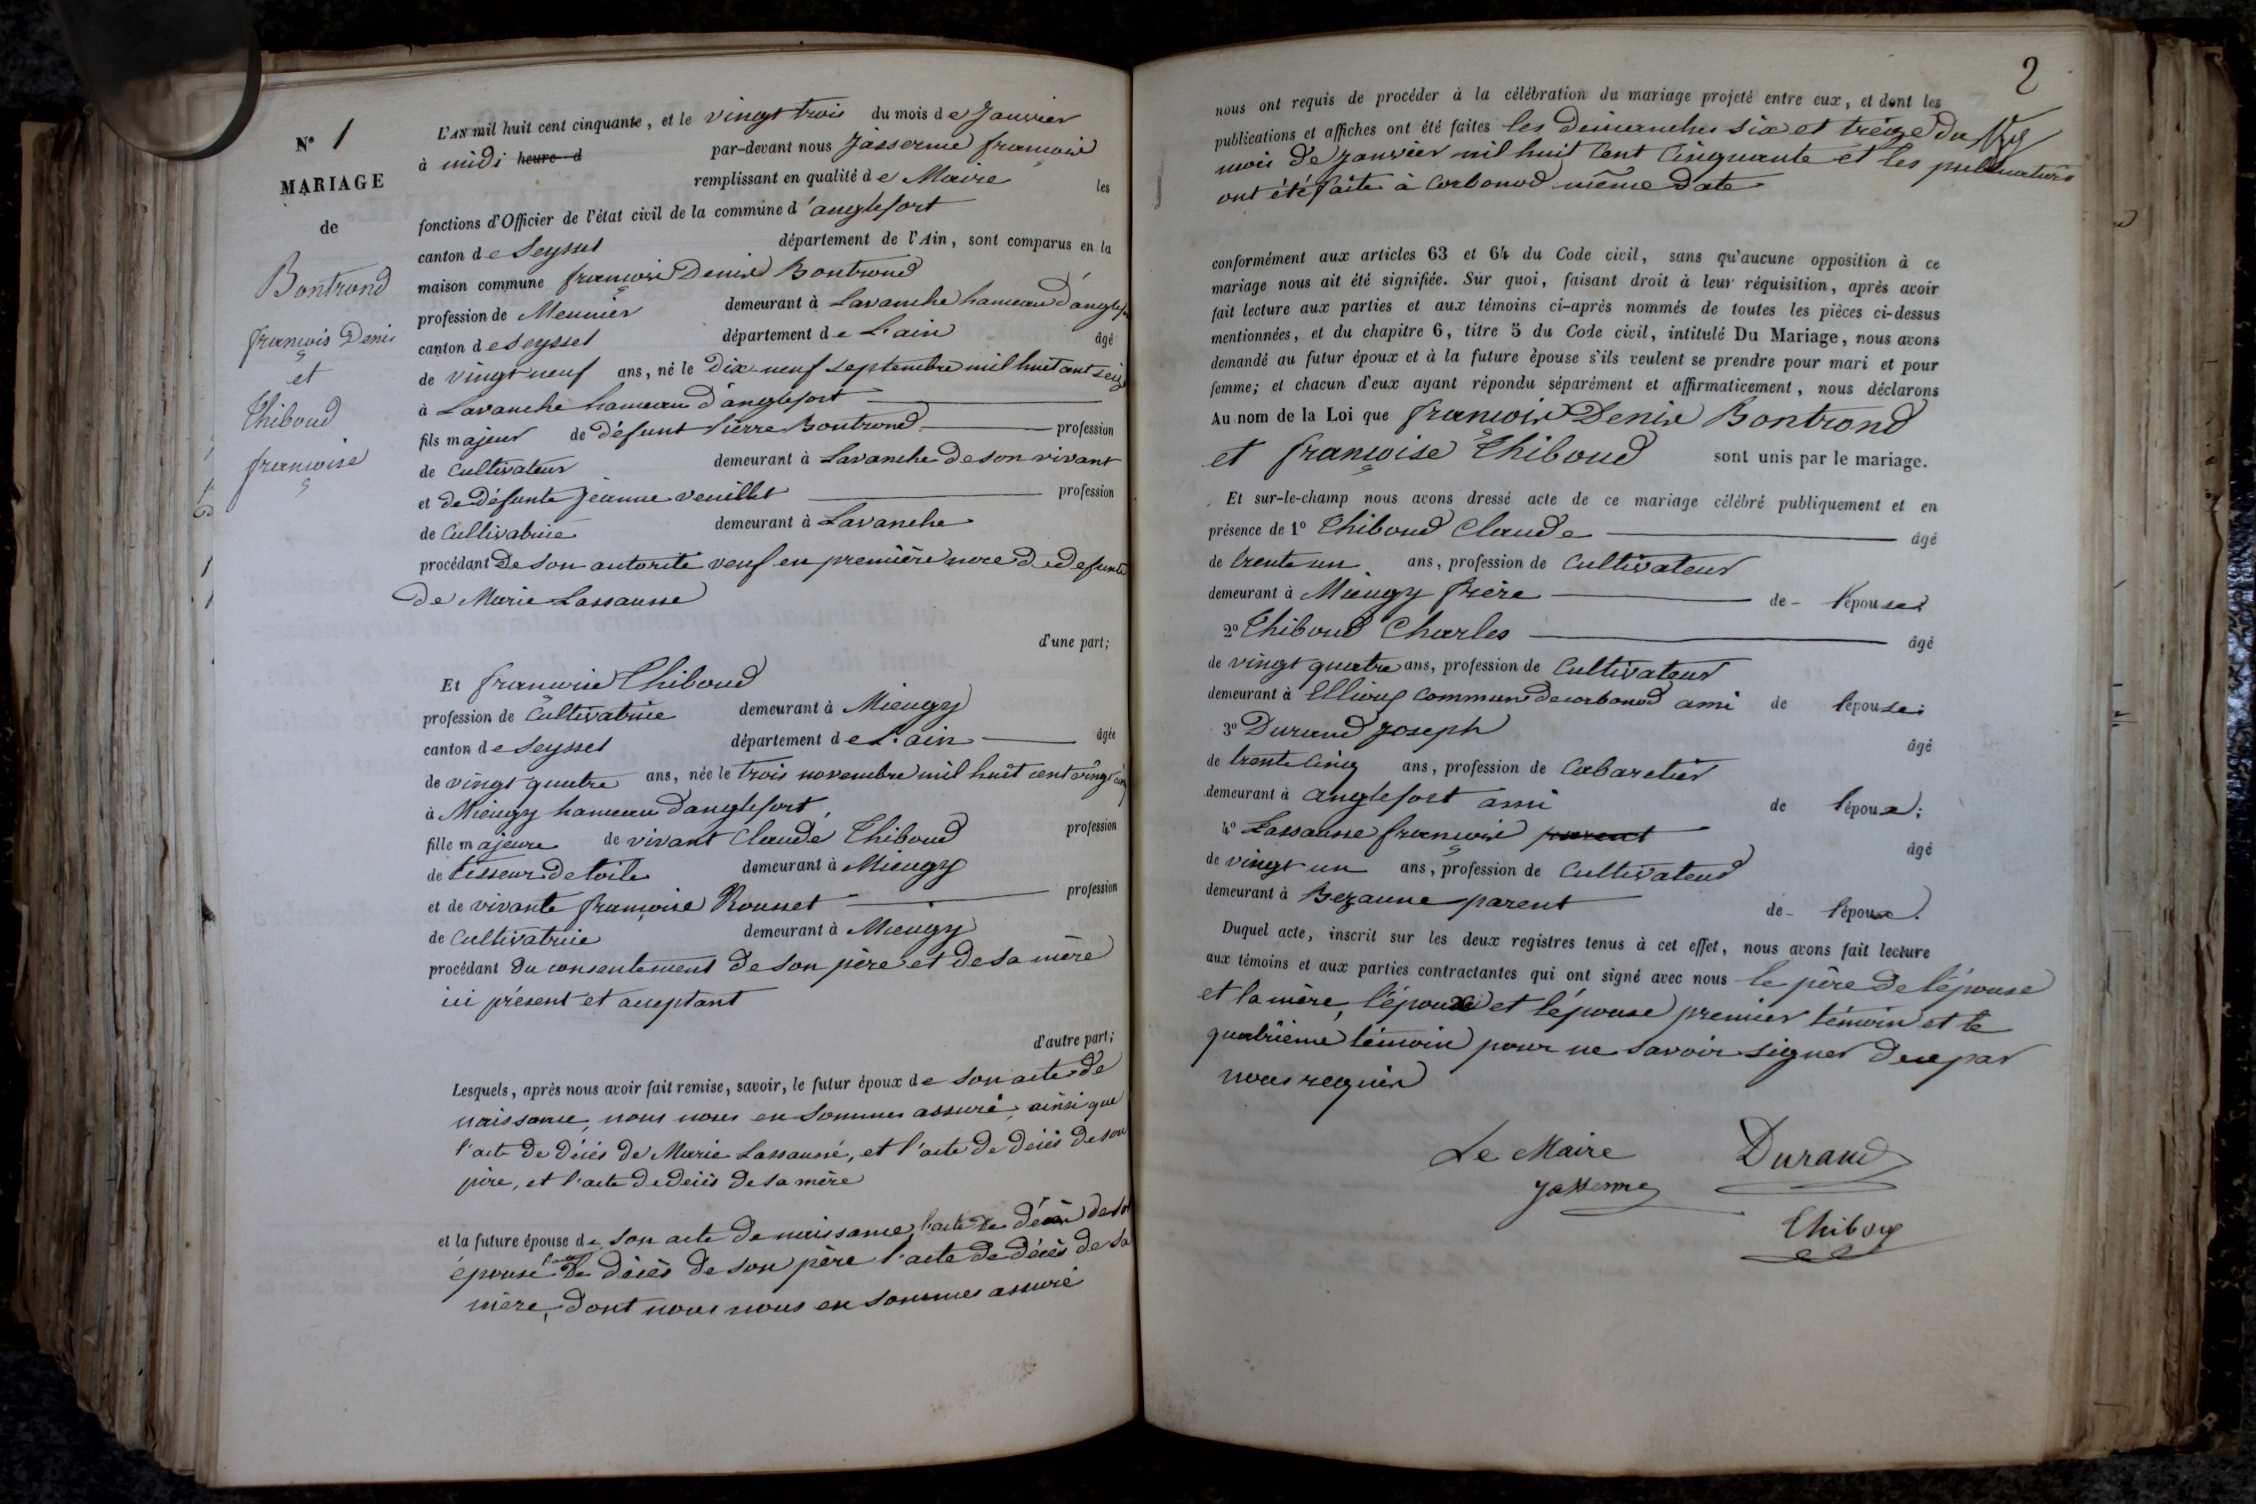 N° 1
MARIAGE
de
Bontrond
françois Denis
et
Thiboud
françoise
L'AN mil huit cent cinquante, et le vingt trois du mois de Janvier
à midi heure d par-devant nous Jasserme françois
remplissant en qualité de Maire les
fonctions d'Officier de l'état civil de la commune d'anglefort
canton de Seyssel département de l'Ain, sont comparus en la
maison commune françois Denis Bontrond
profession de Meunier demeurant à Lavanche hameau d'anglefort
canton de Seyssel département de L'ain âgé
de vingt neuf ans, né le Dix neuf septembre mil huit cent seize
à Lavanche hameau d'anglefort
fils majeur de défunt Pierre Bontrond profession
de Cultivateur demeurant à Lavanche de son vivant
et de Défunte jeanne veuillet profession
de Cultivatrice demeurant à Lavanche
procédant De son autorité veuf en première noce de defunte
de Marie Lassausse
d'une part;
Et françoise Thiboud
profession de Cultivatrice demeurant à Mieugy
canton de Seyssel département de L'ain âgée
de vingt quatre ans, née le trois novembre mil huit cent vingt cinq
à Mieugy hameau d'anglefort,
fille majeure de vivant Claude Thiboud profession
de tisseur de toile demeurant à Mieugy
et de vivante françoise Rousset profession
de Cultivatrice demeurant à Mieugy
procédant du consentement de son père et de sa mère
ici présent et acceptant
d'autre part;
Lesquels, après nous avoir fait remise, savoir, le futur époux de son acte de
naissance, nous nous en sommes assuré, ainsi que
l'acte de décès de Marie Lassausse, et l'acte de décès de son
père, et l'acte de décès de sa mère
et la future épouse de son acte de naissance, l'acte de décès de son
épouse l'acte de décès de son père l'acte de décès de sa
mère, dont nous nous en sommes assuré
2
nous ont requis de procéder à la célébration du mariage projeté entre eux, et dont les
publications et affiches ont été faites les dimanches six et treize du
mois de Janvier mil huit Cent Cinquante et les publications
ont été faite à Corbonod même date
conformément aux articles 63 et 64 du Code civil, sans qu'aucune opposition à ce
mariage nous ait été signifiée. Sur quoi, faisant droit à leur réquisition, après avoir
fait lecture aux parties et aux témoins ci-après nommés de toutes les pièces ci-dessus
mentionnées, et du chapitre 6, titre 5 du Code civil, intitulé Du Mariage, nous avons
demandé au futur époux et à la future épouse s'ils veulent se prendre pour mari et pour
femme; et chacun d'eux ayant répondu séparément et affirmativement, nous déclarons
Au nom de la Loi que françois Denis Bontrond
et françoise Thiboud sont unis par le mariage.
Et sur-le-champ nous avons dressé acte de ce mariage célébré publiquement et en
présence de 1° Thiboud Claude âgé
de trente un ans, profession de Cultivateur
demeurant à Mieugy frère de l'épouse;
2° Thiboud Charles âgé
de vingt quatre ans, profession de Cultivateur
demeurant à commune de corbonod ami de l'épouse;
3° Durand Joseph âgé
de trente Cinq ans, profession de Cabaretier
demeurant à anglefort ami de l'époux;
4° Lassausse françois parent âgé
de vingt un ans, profession de Cultivateur
demeurant à Bezanne parent de l'époux.
Duquel acte, inscrit sur les deux registres tenus à cet effet, nous avons fait lecture
aux témoins et aux parties contractantes qui ont signé avec nous le père de l'épouse
et la mère, l'époux et l'épouse premier témoin et le
quatrième témoin pour ne savoir signer deux par
nous requis
Le Maire Durand
Jasserme
Thiboud